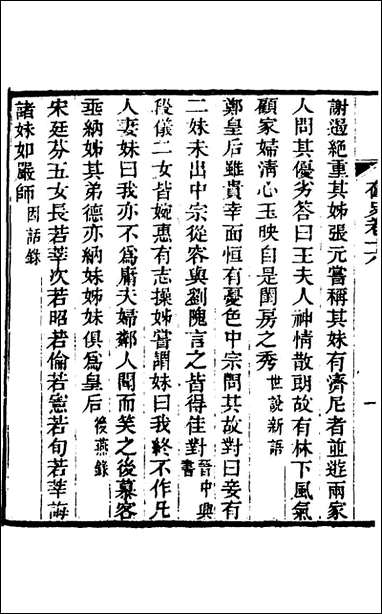 謝遏絶重其姊張元嘗稱其妹有濟尼者並遊兩家
人問其優劣答曰王夫人神情散朗故有林下風氣
顧家婦清心玉映自是閨房之秀世說新語
鄭皇后雖貴幸而恒有憂色中宗問其故對曰妾有
二妹未出中宗從容與劉隗言之皆得佳對晉中興書
段儀二女皆婉惠有志操姊嘗謂妹曰我終不作凡
人妻妹曰我亦不爲庸夫婦鄰人聞而笑之後慕容
垂納姊其弟德亦納妹姊妹俱爲皇后後燕錄
宋廷芬五女長若莘次若昭若倫若憲若荀若莘誨
諸妹如嚴師因話錄